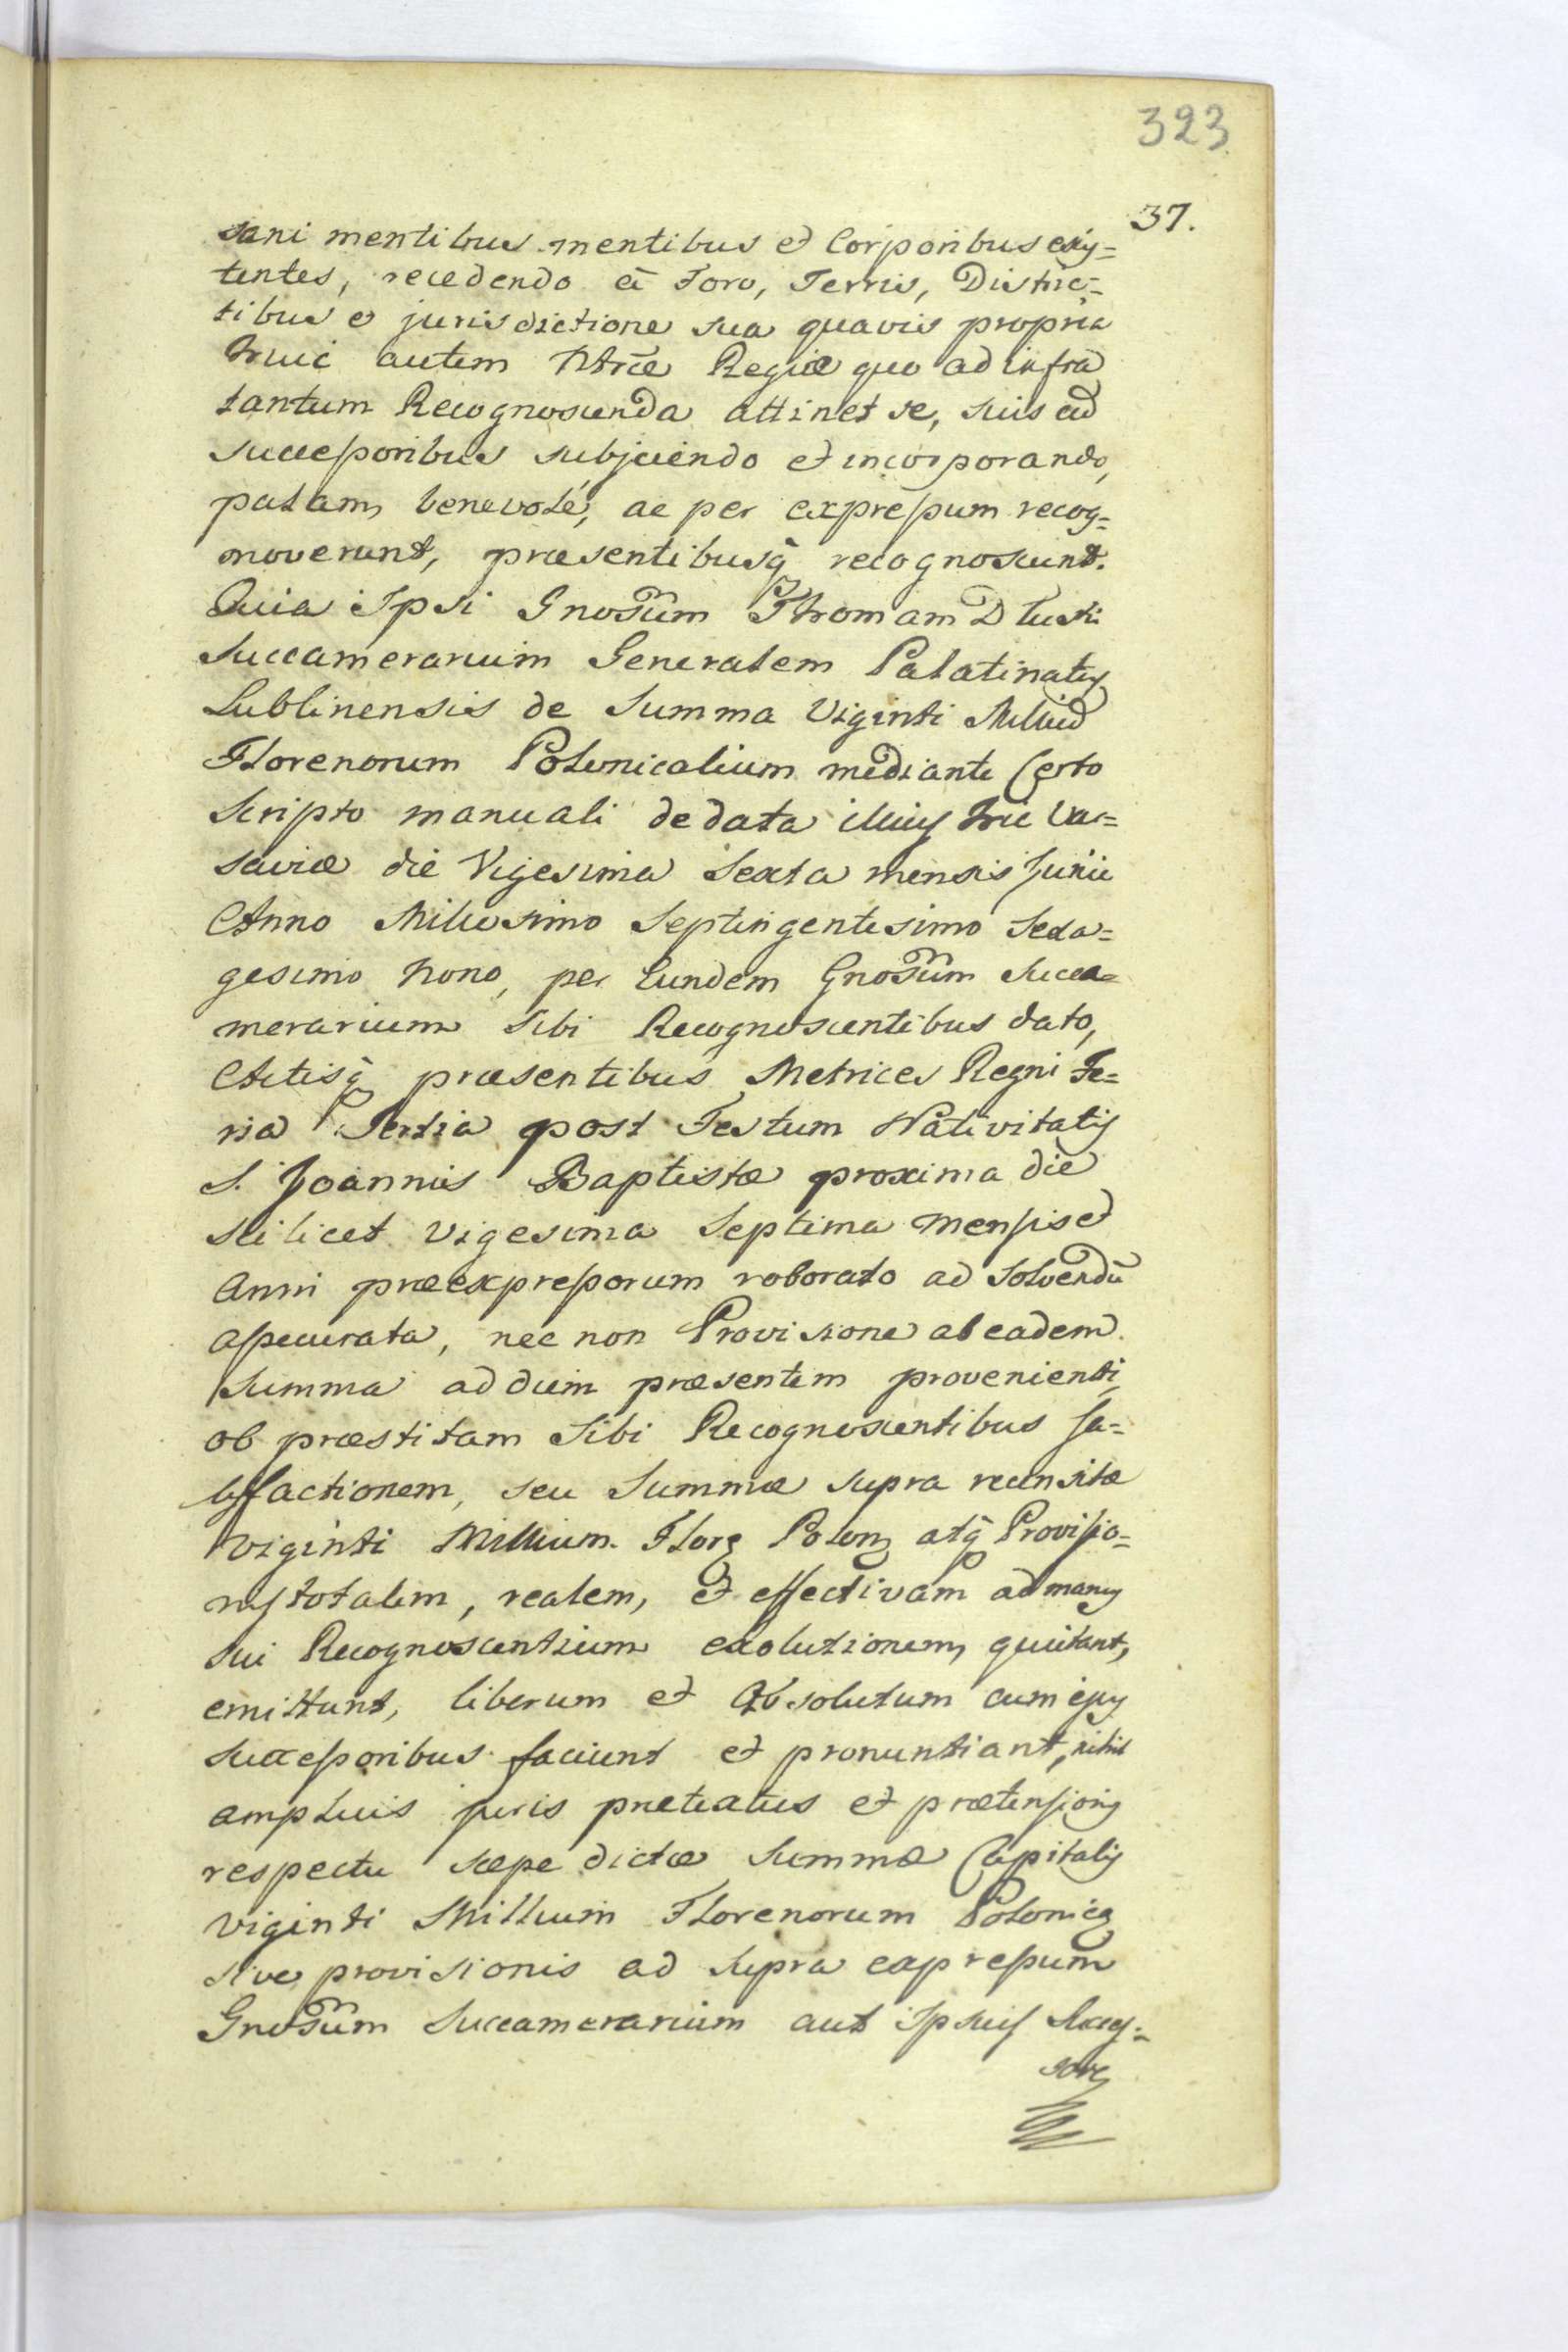 323
37.
sani mentibus mentibus et Corporibus exis=
tentes, recedendo à Foro, Terris, Distric=
tibus et jurisdictione sua quavis propria
huic autem Ntræ Regiæ quo ad infra
tantum Recognoscenda attinet se, suis ad
successoribus subjiciendo et incorporando,
palam, benevolé, ac per expressum recog=
noverunt, præsentibusq recognoscunt.
Quia Ipsi Gnosum Thomam Dłuski
Succamerarium Generalem Palatinatus
Lublinensis de Summa Viginti Millia
Florenorum Polonicalium mediante Certo
Scripto manuali de data illius hic Var=
saviæ die Vigesima Sexta mensis Junii
Anno Millesimo Septingentesimo Sexa=
gesimo Nono, per Eundem Gnosum Succa=
merarium Sibi Recognoscentibus dato,
Actisq præsentibus Metrices Regni Fe=
ria Tertia post Festum Nativitatis
S. Joannis Baptistæ proxima die
scilicet vigesima Septima mensis et
Anni præexpressorum roborato ad Solvendū
assecurata, nec non Provisione ab eadem
Summa ad diem præsentem provenienti,
ob præstitam Sibi Recognoscentibus Sa=
tisfactionem, seu Summæ supra recensitæ
Viginti Millium Flor Polon atq Provisio=
nis totalem, realem, et effectivam ad manus
sui Recognoscentium exolutionem, quietant,
emittunt, liberum et Absolutum cum ejus
successoribus faciunt et pronuntiant, nihil
amplius juris prætextus et prætensionis
respectu sæpe dictæ Summæ Capitalis
Viginti Millium Florenorum Polonic
sive provisionis ad supra expressum
Gnosum Succamerarium aut Ipsius Succes=
sores